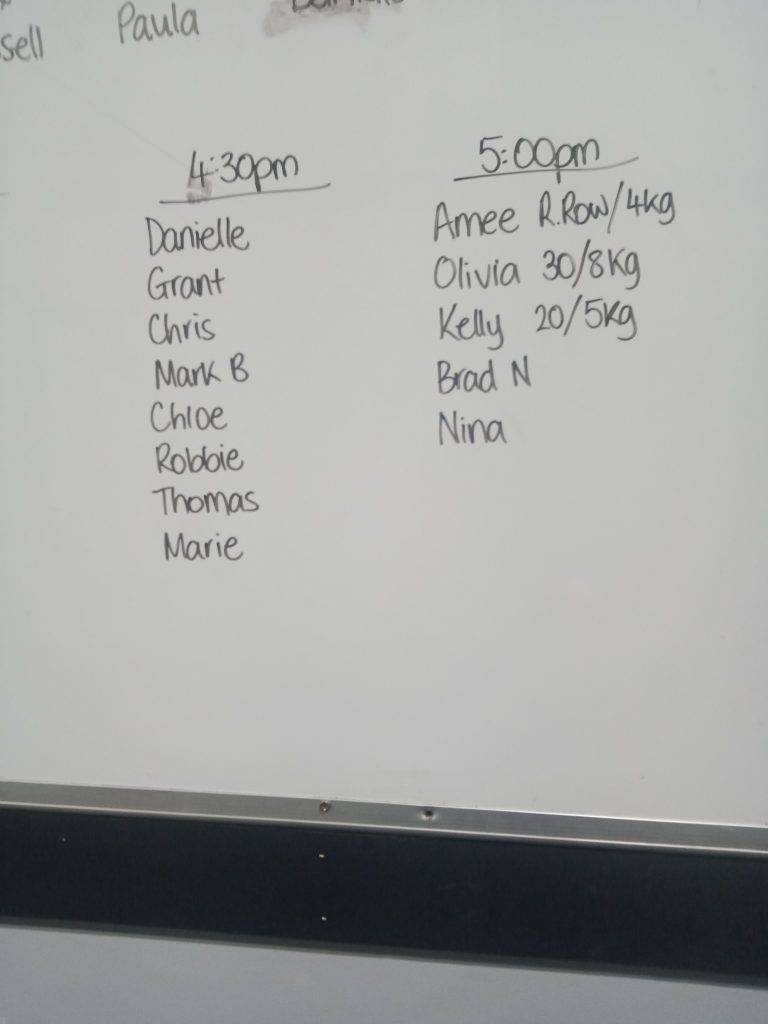 Paula
sell
4:30pm
Danielle
Grant
Chris
Mark B
Chloe
Robbie
Thomas
Marie
5:00pm
Amee R.Row/4kg
Olivia 30/8kg
Kelly 20/5kg
Brad N
Nina